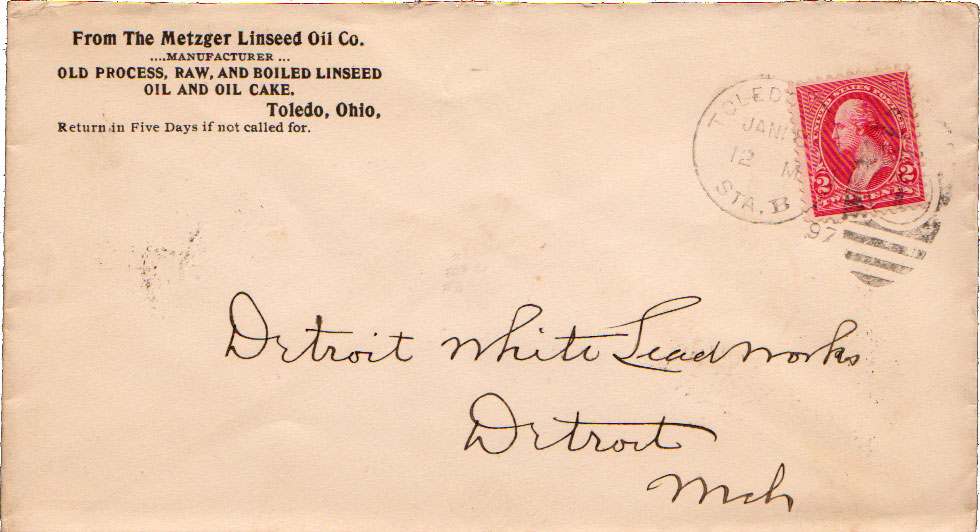 From The Metzger Linseed Oil Co.
....MANUFACTURER ...
OLD PROCESS, RAW, AND BOILED LINSEED
OIL AND OIL CAKE.
Toledo, Ohio,
Return in Five Days if not called for.
TOLEDO
JAN
12 M
STA. B
97
UNITED STATES POSTAGE
2 2
TWO CENTS
Detroit White Lead Works
Detroit
Mch